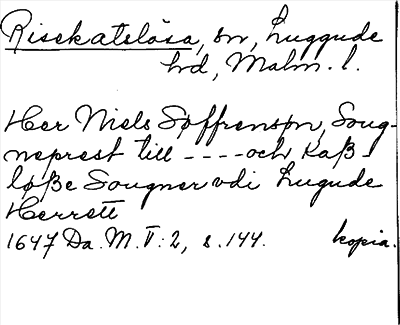 Risekatslösa, sn, Luggude
hd, Malm. l.
Her Niels Søffrensøn, Soug-
neprest till - - - - och Kaß-
løße Sougner vdi Lugude
Herrett
1647 Da. M. V: 2, s. 144. kopia.